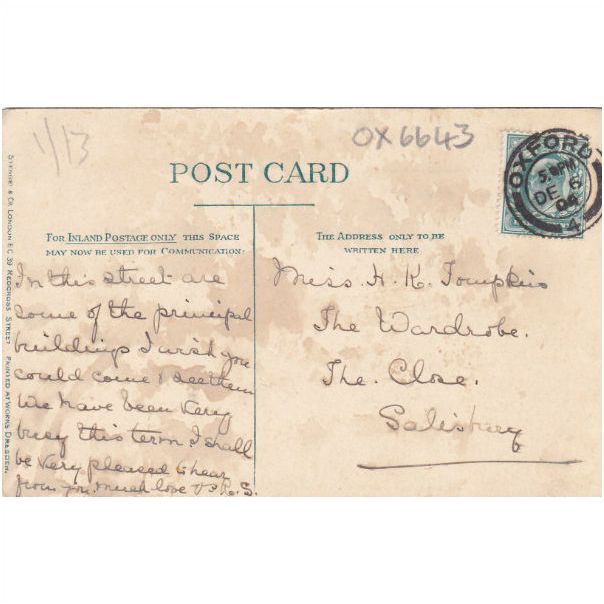 1/13
OX6643
POST CARD
OXFORD
5.0PM
DE 6
04
4
FOR INLAND POSTAGE ONLY THIS SPACE
MAY NOW BE USED FOR COMMUNICATION.
THE ADDRESS ONLY TO BE
WRITTEN HERE
In this street are
some of the principal
buildings I wish you
could come & see them
We have been very
busy this term. I shall
be very pleased to hear
from you. much love
Miss. H. K. Tompkins
The Wardrobe.
The. Close.
Salisbury
STEWART & Co. LONDON E.C. 39 REDCROSS STREET PRINTED AT WORKS DRESDEN.